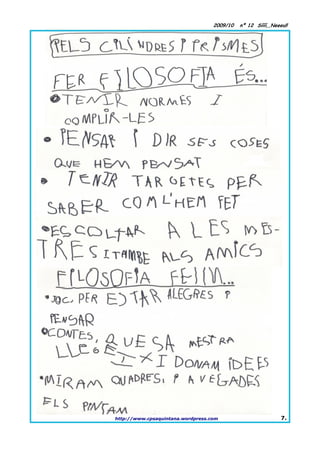 2009/10 nº 12 Siiii_Neeeu!
PELS CILINDRES I PRISMES
FER FILOSOFIA ÉS...
•TENIR NORMES I
COMPLIR-LES
• PENSAR I DIR SES COSES
QUE HEM PENSAT
• TENIR TARGETES PER
SABER COM L'HEM FET
•ESCOLTAR A LES MES-
TRES I TAMBE ALS AMICS
FILOSOFIA FEIM...
•JOC, PER ESTAR ALEGRES I
PENSAR
•CONTES, QUE SA MESTRA
LLEGEIX I DONAM IDEES
•MIRAM QUADRES, I A VEGADES
ELS PINTAM
http://www.cpsaquintana.wordpress.com 7.